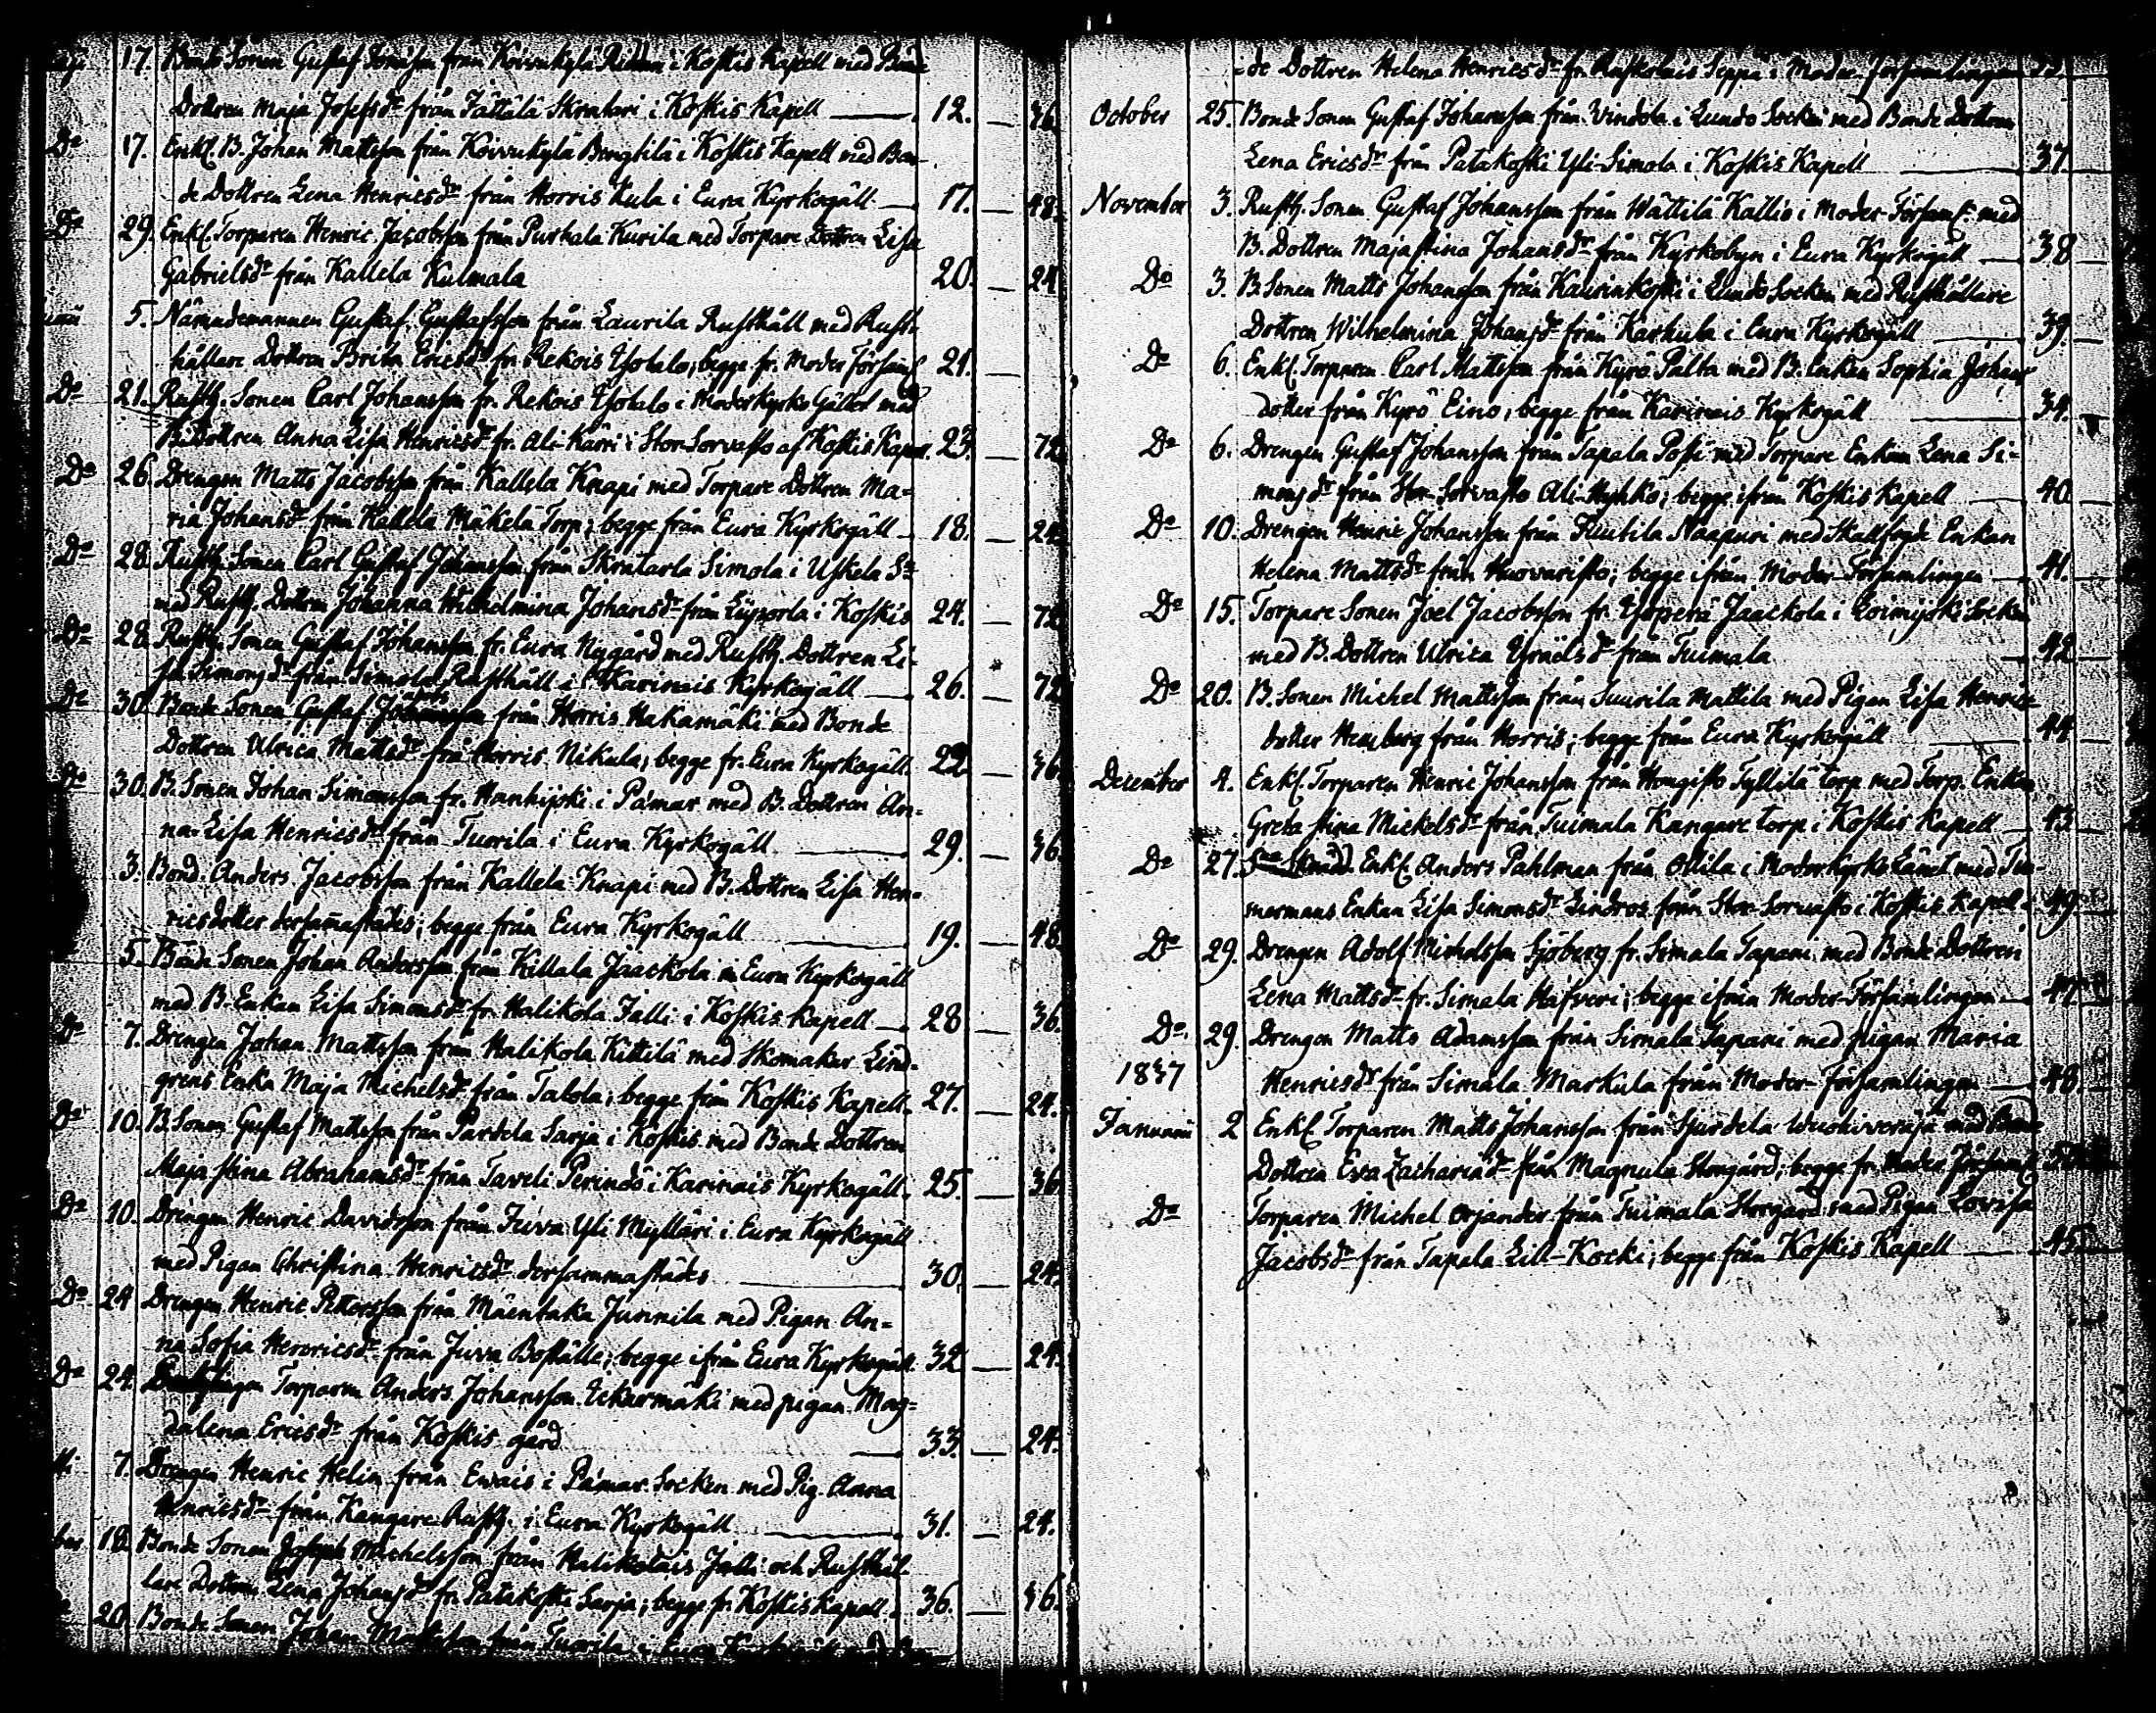 17. Bonde Sonen Gustaf Jonasson från Koivukylä i Koskis Kapell med Bonde
Dottren Maja Josefsdr från Jättälä Skratari i Koskis Kapell 12. 36.
Do 17. Enkl. B. Johan Mattsson från Koivukylä Bengtilä i Koskis Kapell med Bon-
de Dottren Lena Henricsdr från Horris Kula i Eura Kyrkogäll 17. 48.
Do 29. Enkl. Torparen Henric Jacobsson från Purhala Kurila med Torpare Dottren Lisa
Gabrielsdr från Kallela Kulmala 20. 24
5. Nämndemannen Gustaf Gustafsson från Laurila Rusthåll med Rust-
hållare Dottren Brita Ericsdr fr. Rekois Isotalo, begge fr. Moder Församl 21.
Do 21. Rusth. Sonen Carl Johansson fr. Rekois Isotalo i Moderkyrko Gället med
B. Dottren Anna Lisa Henricsdr fr. Ali Kärri i Stor-Sorvasto af Koskis Kapell. 23. 72
Do 26. Drengen Matts Jacobsson från Kallela Knapi med Torpare Dottren Ma-
ria Johansdr från Kallela Mäkelä Torp; begge från Eura Kyrkogäll 18. 24.
Do 28. Rusth. Sonen Carl Gustaf Johansson från Skratarla Simola i Uskela Sn
med Rusth. Dottren Johanna Wilhelmina Johansdr från Liipola i Koskis 24. 72
Do 28. Rusth. Sonen Gustaf Johansson fr. Eura Nygård med Rusth. Dottren Li-
sa Simonsdr från Simola Rusthåll i Karinais Kyrkogäll 26. 72
Do 30. Bonde Sonen Gustaf från Horris Hakamäki med Bonde
Dottren Ulrica Mattsdr från Horris Nikula; begge fr. Eura Kyrkogäll. 22. 36.
Do 30. B. Sonen Johan Simonsson fr. Hanhijoki i Pämar med B. Dottren An-
na-Lisa Henricsdr från Tuorila i Eura Kyrkogäll 29. 36.
3. Bond. Anders Jacobsson från Kallela Knapi med B. Dottren Lisa Hen-
ricsdotter dersammastädes; begge från Eura Kyrkogäll 19. 48.
5. Bonde Sonen Johan Andersson från Killala Jaackola i Eura Kyrkogäll
med B. Enkan Lisa Simonsdr fr. Halikola Jalli i Koskis Kapell 28 36.
Do 7. Drengen Johan Mattsson från Halikola Kittilä med Skomakar Lind-
grens Enka Maja Michelsdr från Talola, begge från Koskis Kapell. 27. 24.
Do 10. B. Sonen Gustaf Mattsson från Partela Sarja i Koskis med Bonde Dottren
Maja Stina Abrahamsdr från Taveli Perindö i Karinais Kyrkogäll. 25. 36.
Do 10. Drengen Henric Davidsson från Juva Yli Mylläri i Eura Kyrkogäll
med Pigan Christina Henricsdr dersammastädes 30. 24.
Do 24 Drengen Henric Pettersson från Mäentaka Junnila med Pigan An-
na Sofia Henricsdr från Juva Boställe; begge ifrån Eura Kyrkogäll. 32 24.
Do 24. Torparen Anders Johansson Eckarmäki med pigan Mag-
dalena Ericsdr från Koskis gård 33. 24.
7. Drengen Henric Helin från Evais i Pämar Socken med Pig. Anna
Henricsdr från Kangare Rusth. i Eura Kyrkogäll 31. 24.
18. Bonde Sonen Joseph Michelsson från Halikolais Jalli och Rusthål-
lare Dottren Lena Johansdr fr. Patakoski Sarja; begge fr. Koskis Kapell. 36. 36.
20. Bonde Sonen Johan Mattsson från Tuorila i Eura
de Dottren Helena Henricsdr fr. Seppä i Moder församlingen
October 25. Bonde Sonen Gustaf Johansson från Vindola i Lundo Socken med Bonde Dottren
Lena Ericsdr från Patakoski Yli-Simola i Koskis Kapell 37.
November 3. Rusth. Sonen Gustaf Johansson från Wättilä Kallio i Moder-Församl. med
B. Dottren Maja Stina Johansdr från Kyrkobyn i Eura Kyrkogäll 38
Do 3. B. Sonen Matts Johansson från Kaurinkoski i Lundo Socken med Rusthållare
Dottren Wilhelmina Johansdr från Karkula i Eura Kyrkogäll 39.
Do 6. Enkl. Torparen Carl Mattsson från Kyrö Pälta med B. Enkan Sophia Johans
dotter från Kyrö Eino, begge från Karinais Kyrkogäll 34.
Do 6. Drengen Gustaf Johansson från Tapala Poski med Torpare Enkan Lena Si-
monsdr från Stor-Sorvasto Ali-Hyhkö; begge ifrån Koskis Kapell 40.
Do 10. Drengen Henric Johansson från Juutila Naapuri med Skallfogde Enkan
Helena Mattsdr från Huovaristo; begge ifrån Moder-Församlingen 41.
Do 15. Torpare Sonen Joel Jacobsson fr. Isoperä Jaackola i Loimijoki Socken
med B. Dottren Ulrica Israelsdr från Tuimala 42
Do 20. B. Sonen Michel Mattsson från Suurila Mattila med Pigan Lisa Henrics
dotter Hemberg från Horris; begge från Eura Kyrkogäll 44
December 4. Enkl. Torparen Henric Johansson från Hongisto Tyllilä torp med Torp. Enkan
Greta Stina Mickelsdr från Tuimala Kangare torp i Koskis Kapell 43
Do 27. Enkl. Anders Pahlman från Ollila i Moderkyrko Länet med Tim-
mermans Enkan Lisa Simonsdr Lindros från Stor-Sorvasto i Koskis Kapell 49.
Do 29. Drengen Adolf Michelsson Sjöberg fr. Simala Tapani med Bonde Dottren
Lena Mattsdr fr. Simala Häfveri; begge ifrån Moder-Församlingen 47.
Do. 29. Drengen Matts Adamsson från Simala Tapani med pigan Maria
1837 Henricsdr från Simala Markula från Moder-församlingen 48.
Januarii 2 Enkl. Torparen Matts Johansson från Sjurdela med
Dottren Eva Zachariædr från Magnula Storgård; begge fr. Moder Församl
Do Torparen Michel Orjander från Tuimala Storgård med Pigan Lovisa
Jacobsdr från Tapala Lill-Kocki; begge från Koskis Kapell 45.